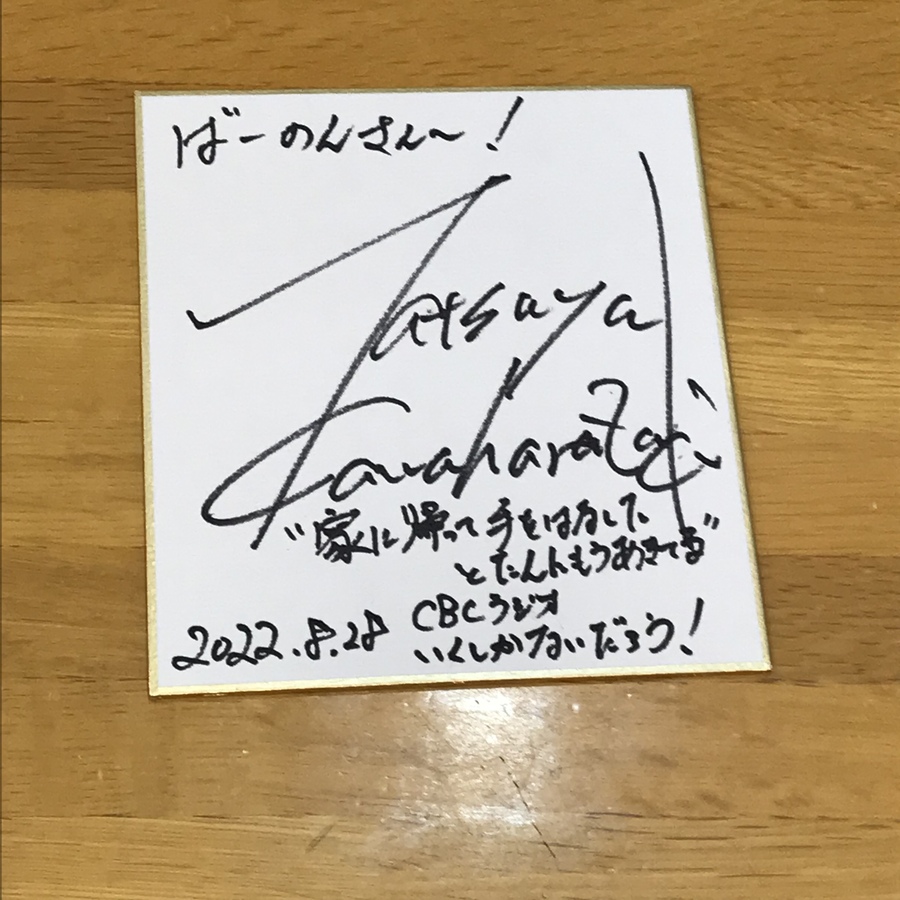 ばーのんさん〜!
Tatsuya
Kawahara
"家に帰って手をはなした
とたんにもうあきてる"
2022.8.28
CBCラジオ
いくしかないだろう!